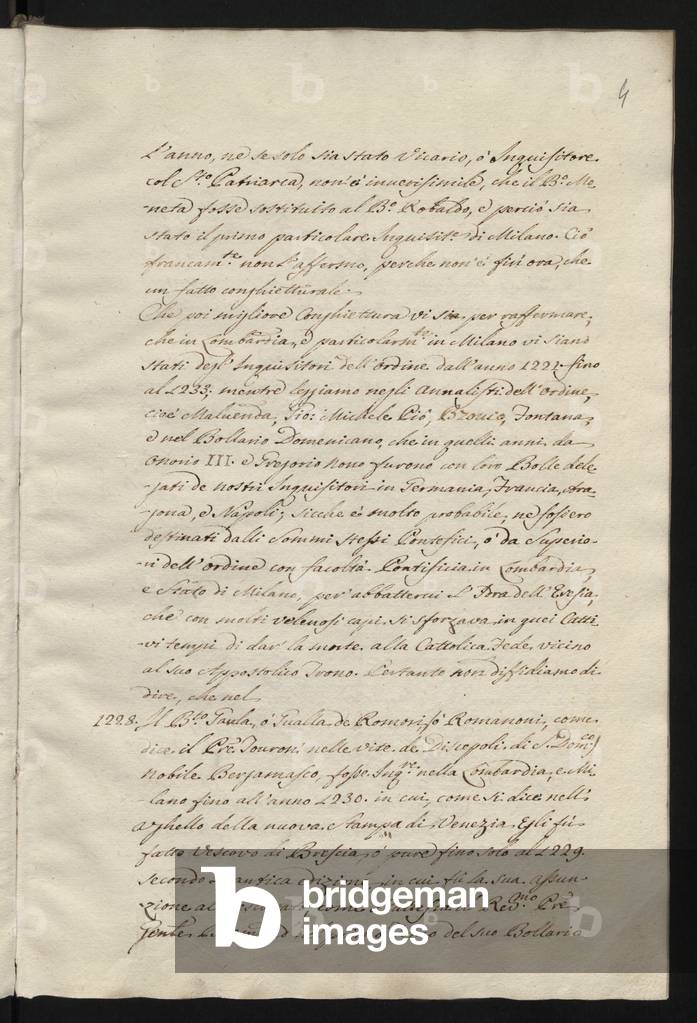 4
L'anno, ne se solo sia stato Vicario, ò Inquisitore
col S.to Patriarca, non è inverisimile, che il B.o Me-
-neta fosse sostituito al B.o Robaldo, e perciò sia
stato il primo particolare Inquisit.e di Milano. Ciò
francam.te non l'affermo, perche non è fin ora, che
un fatto conghietturale.
Che poi migliore Conghiettura vi sia per raffermare,
che in Lombardia, e particolarm.te in Milano vi siano
stati degl' Inquisitori dell'Ordine dall'anno 1221. fino
al 1233, mentre leggiamo negli Annalisti dell'Ordine,
cioè Malvenda, Gio: Michele Piò, Bzovio, Fontana,
e nel Bollario Domenicano, che in quelli anni da
Onorio III. e Gregorio Nono furono con loro Bolle dele-
-gati de nostri Inquisitori in Germania, Francia, Ara-
-gona, e Napoli; sicche è molto probabile, ne fossero
destinati dalli Sommi stessi Pontefici, ò da Superio-
-ri dell'Ordine con facoltà Pontificia in Lombardia,
e Stato di Milano, per abbattervi l'Idra dell'Eresia,
che con molti velenosi capi si sforzava in quei Catti-
-vi tempi di dar la morte alla Cattolica Fede vicino
al suo Appostolico Trono. Pertanto non diffidiamo di
dire, che nel
1228. Il B.to Guala, ò Gualla de Romoni, ò Romanoni, come
dice il Prê Touron nelle vite de Discepoli di S. Dom.co
Nobile Bergamasco, fosse Inq.re nella Lombardia, e Mi-
-lano fino all'anno 1230. in cui, come si dice nell'
Ughello della nuova Stampa di Venezia, Egli fù
fatto Vescovo di Brescia, ò pure fino solo al 1229.
secondo antica in cui fù la sua assun-
-zione al come Rev.mo Prê
del suo Bollario
bridgeman
images